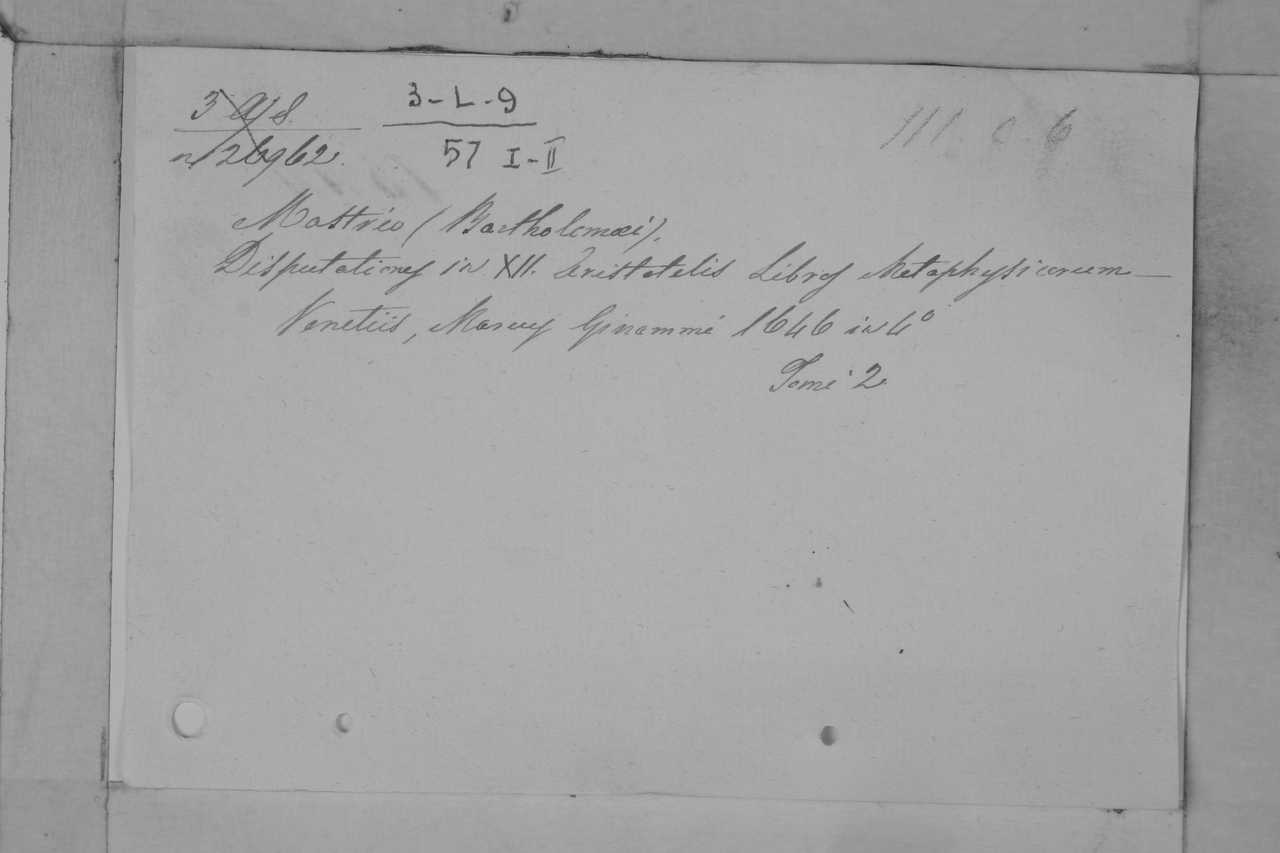 3 9/8 3-L-9
n 26962. 57 I-II
III. c. 6
Mastrio (Bartholomæi).
Disputationes in XII. Aristotelis Libros Metaphysicorum —
Venetiis, Marcus Ginammi 1646 in 4°
Tomi 2